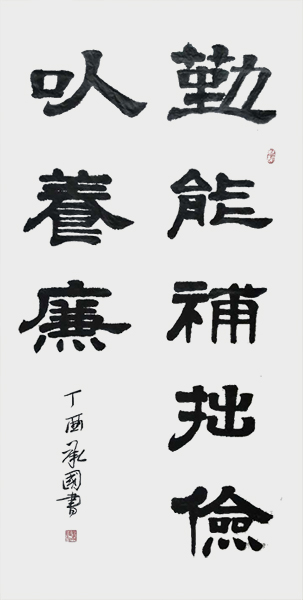 勤能補拙儉
以養廉
丁酉承國書